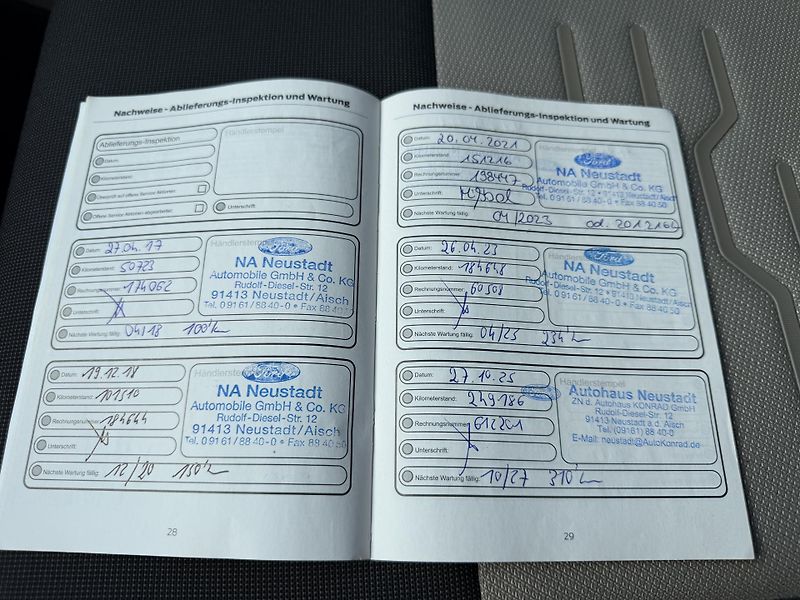 Nachweise - Ablieferungs-Inspektion und Wartung
Ablieferungs-Inspektion
Händlerstempel
Datum:
Kilometerstand:
Überprüft auf offene Service-Aktionen:
Offene Service-Aktionen abgearbeitet:
Unterschrift:
Datum: 27.04.17
Kilometerstand: 50723
Rechnungsnummer: 174062
Unterschrift:
Nächste Wartung fällig: 04/18 100'
Händlerstempel
Ford
NA Neustadt
Automobile GmbH & Co. KG
Rudolf-Diesel-Str. 12
91413 Neustadt/Aisch
Tel. 0 91 61 / 88 40-0 • Fax 88 40 50
Datum: 19.12.18
Kilometerstand: 101510
Rechnungsnummer: 184644
Unterschrift:
Nächste Wartung fällig: 12/20 150'
Händlerstempel
Ford
NA Neustadt
Automobile GmbH & Co. KG
Rudolf-Diesel-Str. 12
91413 Neustadt/Aisch
Tel. 0 91 61 / 88 40-0 • Fax 88 40 50
28
Nachweise - Ablieferungs-Inspektion und Wartung
Datum: 20.04.2021
Kilometerstand: 151216
Rechnungsnummer: 198417
Unterschrift:
Nächste Wartung fällig: 04/2023 od. 201216
Ford
NA Neustadt
Automobile GmbH & Co. KG
Rudolf-Diesel-Str. 12 • 91413 Neustadt/Aisch
Tel. 0 91 61 / 88 40-0 • Fax 88 40 50
Datum: 26.04.23
Kilometerstand: 184648
Rechnungsnummer: 60508
Unterschrift:
Nächste Wartung fällig: 04/25 234'
Händlerstempel
Ford
NA Neustadt
Automobile GmbH & Co. KG
Rudolf-Diesel-Str. 12 • 91413 Neustadt/Aisch
Tel. 0 91 61 / 88 40-0 • Fax 88 40 50
Datum: 27.10.25
Kilometerstand: 249186
Rechnungsnummer: 612201
Unterschrift:
Nächste Wartung fällig: 10/27 310'
Händlerstempel
Autohaus Neustadt
ZN d. Autohaus KONRAD GmbH
Rudolf-Diesel-Str. 12
91413 Neustadt a.d. Aisch
Tel. (09161) 88 40-0
E-Mail: neustadt@AutoKonrad.de
29